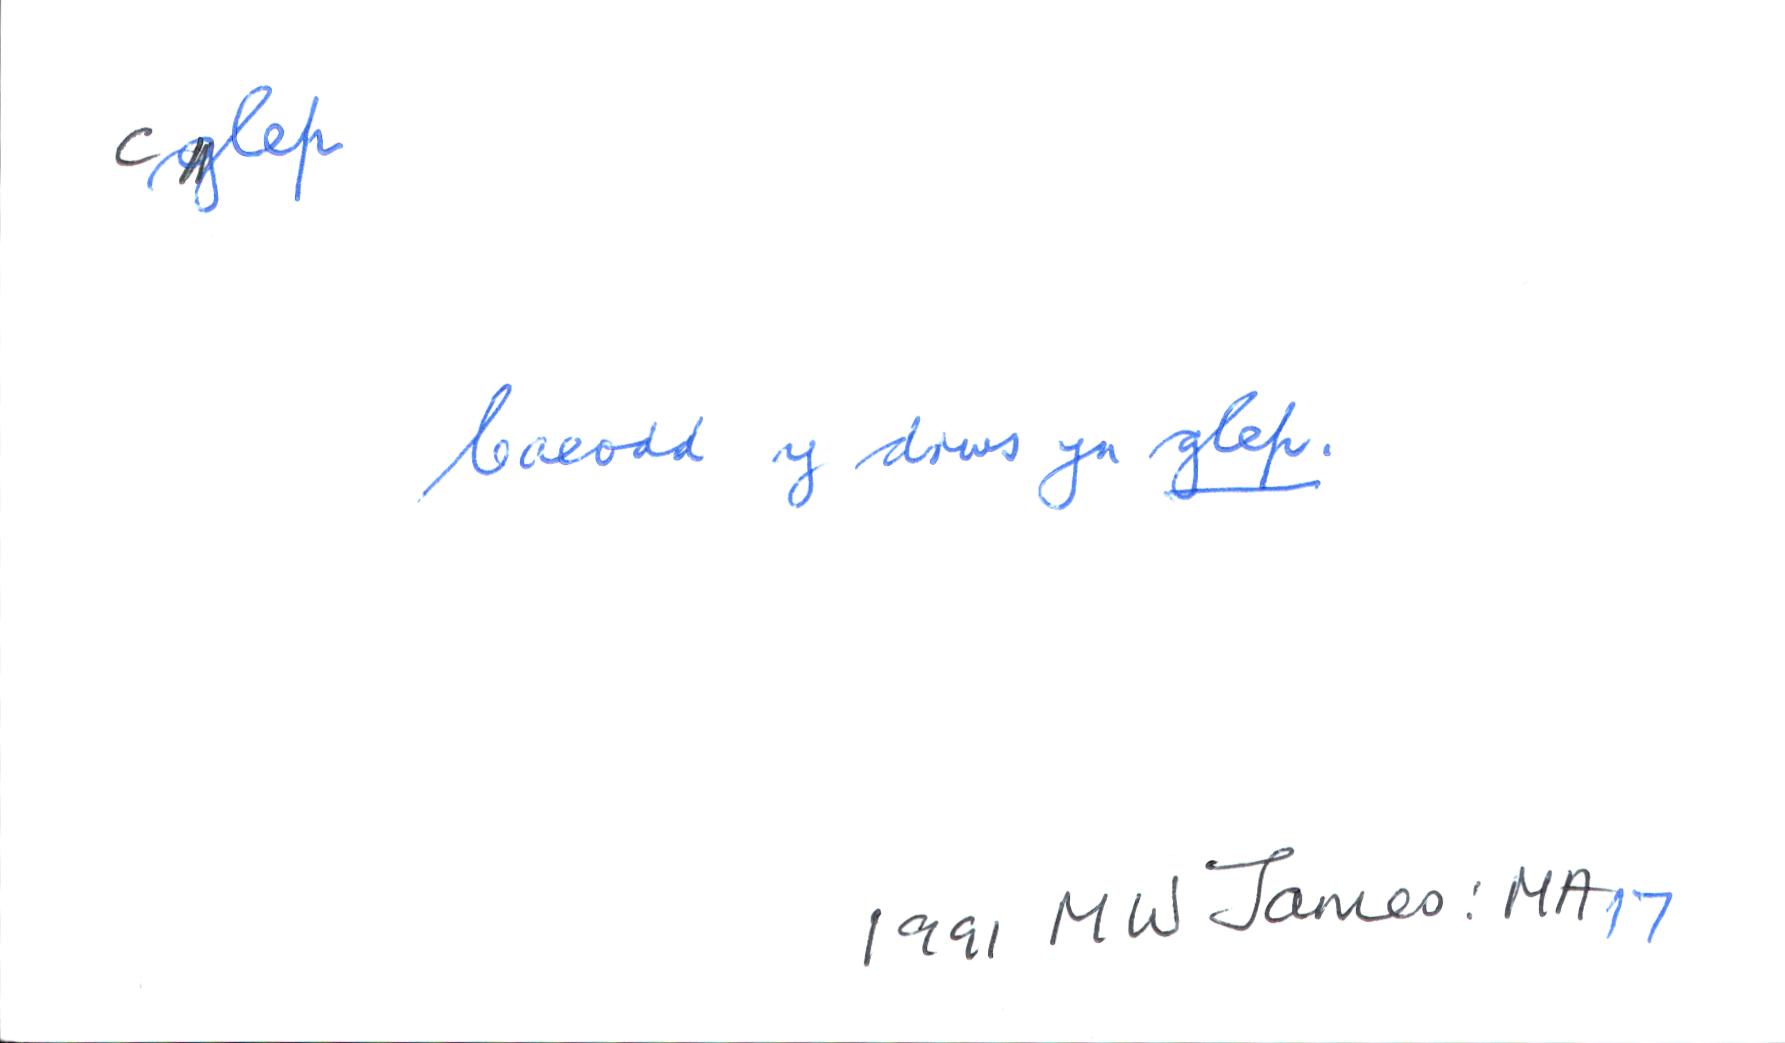 clep
Caeodd y drws yn glep.
1991 MW James: MA 17